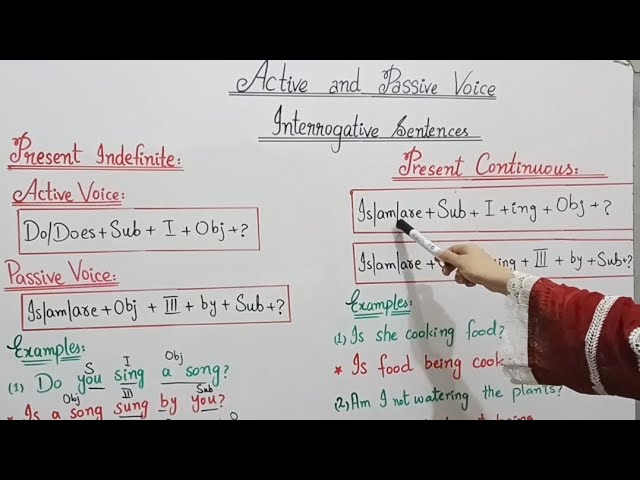 Active and Passive Voice
Interrogative Sentences
Present Indefinite:
Active Voice:
Do/Does + Sub + I + Obj + ?
Passive Voice:
Is/am/are + Obj + III + by + Sub + ?
Examples:
S I Obj
(1) Do you sing a song?
Obj III Sub
* Is a song sung by you?
Present Continuous:
Is/am/are + Sub + I + ing + Obj + ?
Is/am/are + + III + by + Sub + ?
Examples:
(1) Is she cooking food?
* Is food being cook
(2) Am I not watering the plants?
being